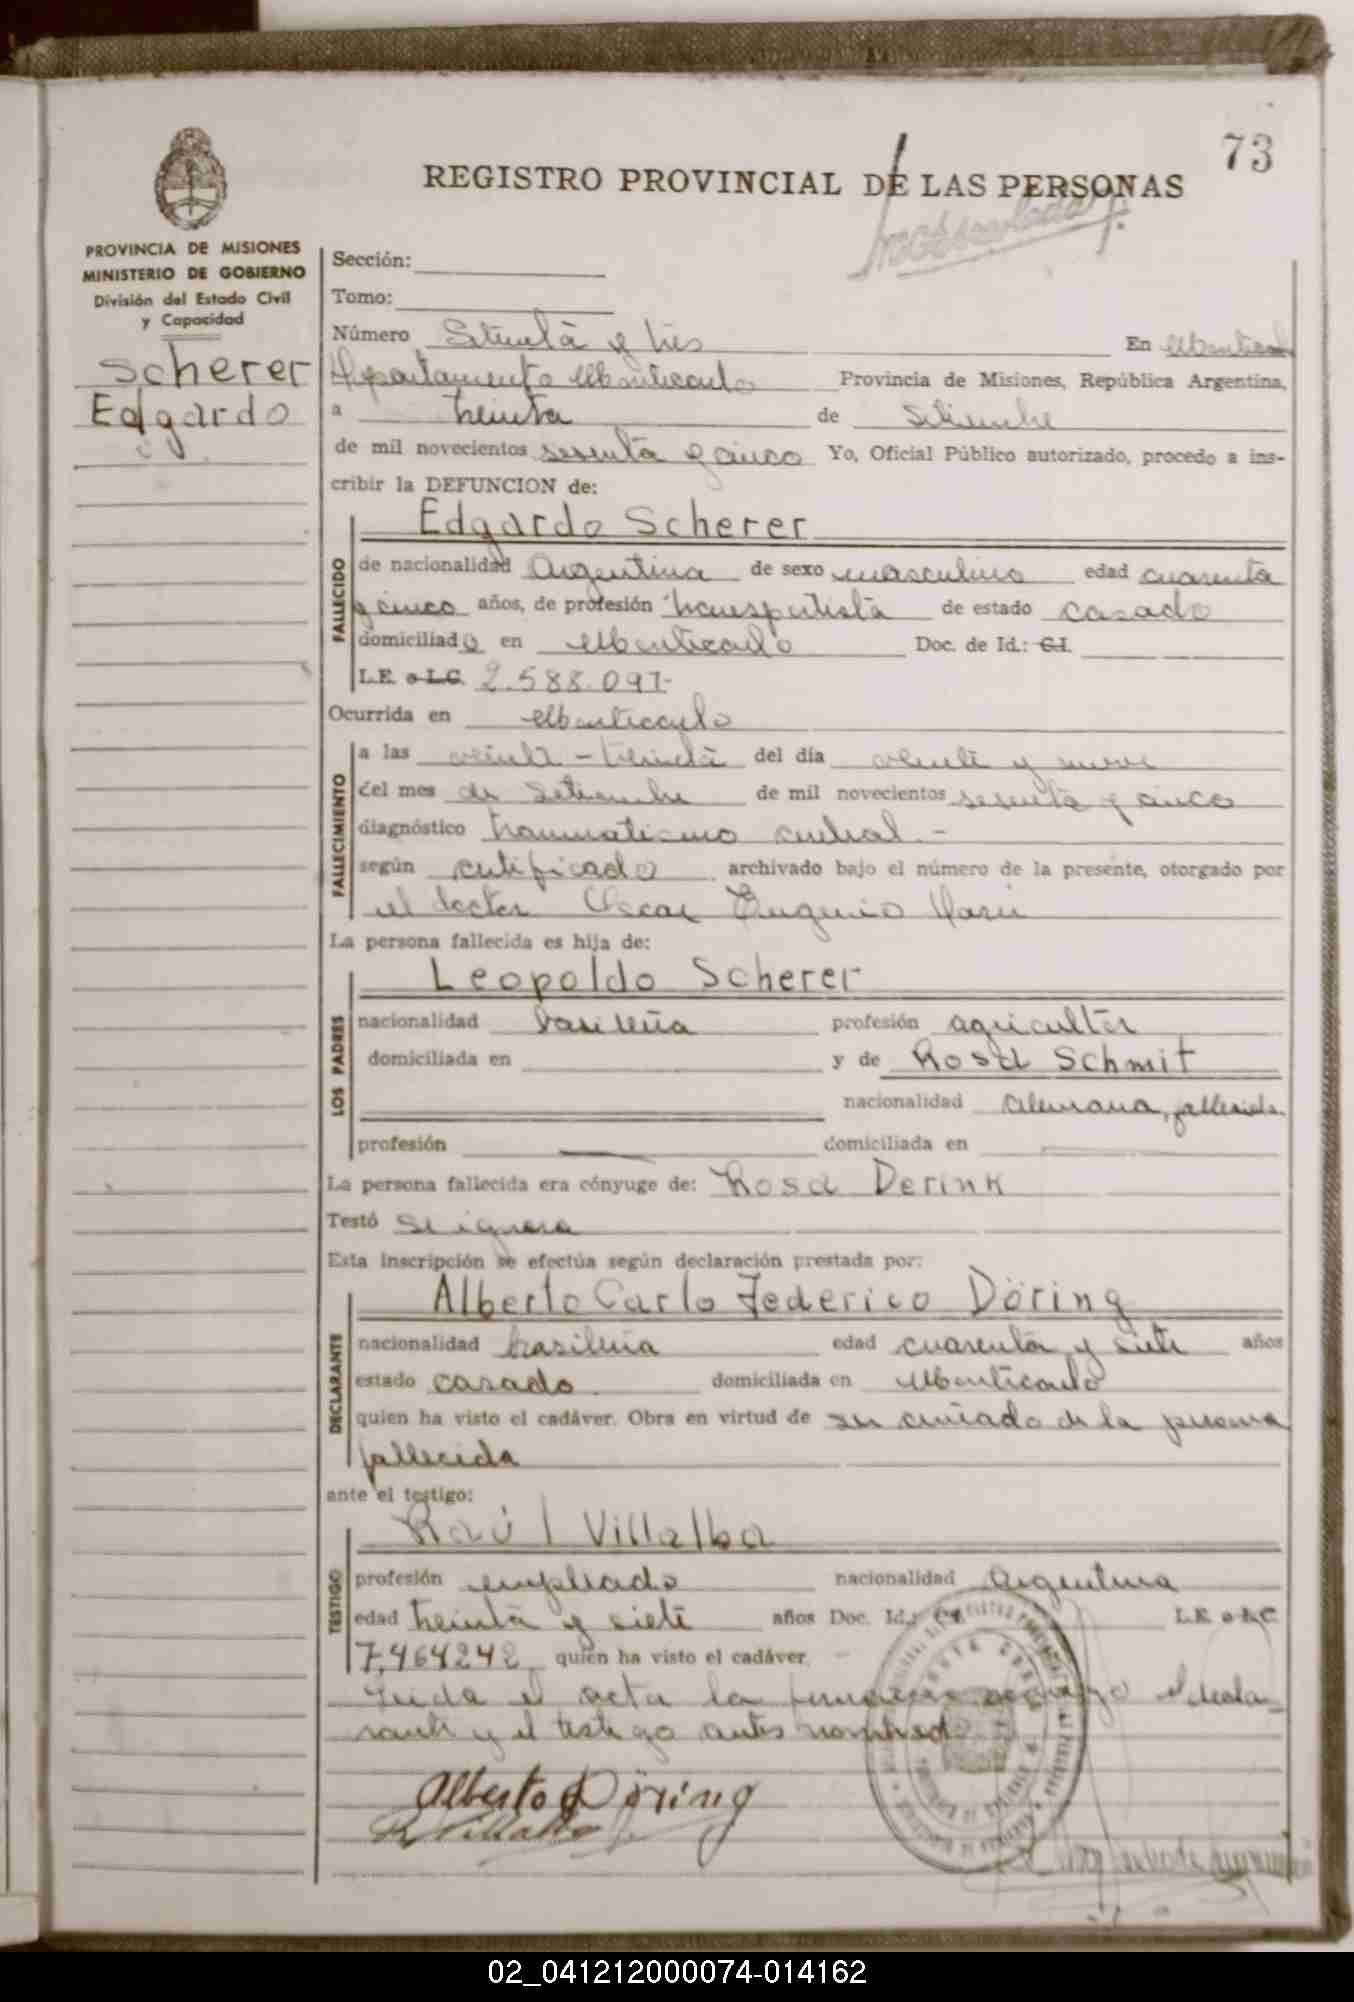 73
REGISTRO PROVINCIAL DE LAS PERSONAS
PROVINCIA DE MISIONES
MINISTERIO DE GOBIERNO
División del Estado Civil
y Capacidad
Scherer
Edgardo
Sección:
Tomo:
Número Setenta y tres En Montecarlo
Departamento Montecarlo Provincia de Misiones, República Argentina,
a treinta de Setiembre
de mil novecientos sesenta y cinco Yo, Oficial Público autorizado, procedo a ins-
cribir la DEFUNCION de:
Edgardo Scherer
FALLECIDO
de nacionalidad Argentina de sexo masculino edad cuarenta
y cinco años, de profesión transportista de estado casado
domiciliado en Montecarlo Doc. de Id.: C.I.
L.E. o L.C. 2.588.097-
Ocurrida en Montecarlo
FALLECIMIENTO
a las veinte - treinta del día veinte y nueve
del mes de Setiembre de mil novecientos sesenta y cinco
diagnóstico traumatismo .-
según certificado archivado bajo el número de la presente, otorgado por
el doctor Oscar Eugenio
La persona fallecida es hija de:
Leopoldo Scherer
LOS PADRES
nacionalidad brasileña profesión agricultor
domiciliada en y de Rosa Schmit
nacionalidad alemana, fallecida.
profesión — domiciliada en
La persona fallecida era cónyuge de: Rosa Derink
Testó se ignora
Esta inscripción se efectúa según declaración prestada por:
Alberto Carlo Federico Döring
DECLARANTE
nacionalidad brasileña edad cuarenta y siete años
estado casado domiciliada en Montecarlo
quien ha visto el cadáver. Obra en virtud de ser cuñado de la persona
fallecida
ante el testigo:
Raúl Villalba
TESTIGO
profesión empleado nacionalidad Argentina
edad treinta y siete años Doc. Id.: C.I. L.E. o L.C.
7.464242 quien ha visto el cadáver.
Leida el acta la conmigo el decla-
rante y el testigo antes nombrado
Alberto Döring
R Villalba
02_041212000074-014162